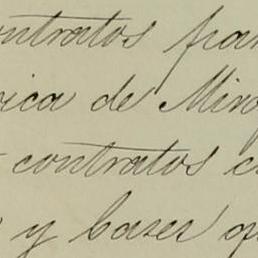 ontratos par
ica de Mira
contratos c
y bases q